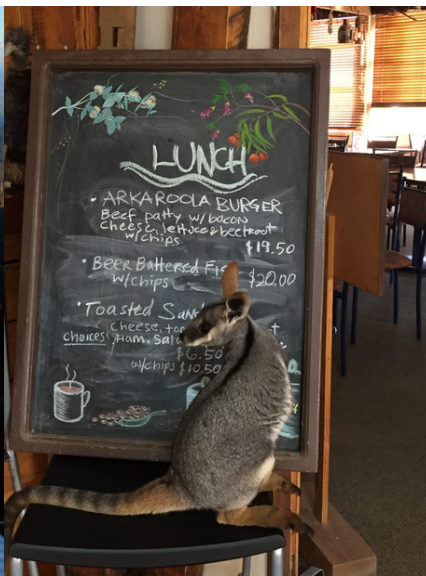 LUNCH
• ARKAROOLA BURGER
Beef patty w/bacon
Cheese, lettuce & beetroot
w/chips
$19.50
• Beer Battered
w/chips
$20.00
• Toasted
Cheese,
choices Ham,
$6.50
w/chips $10.50